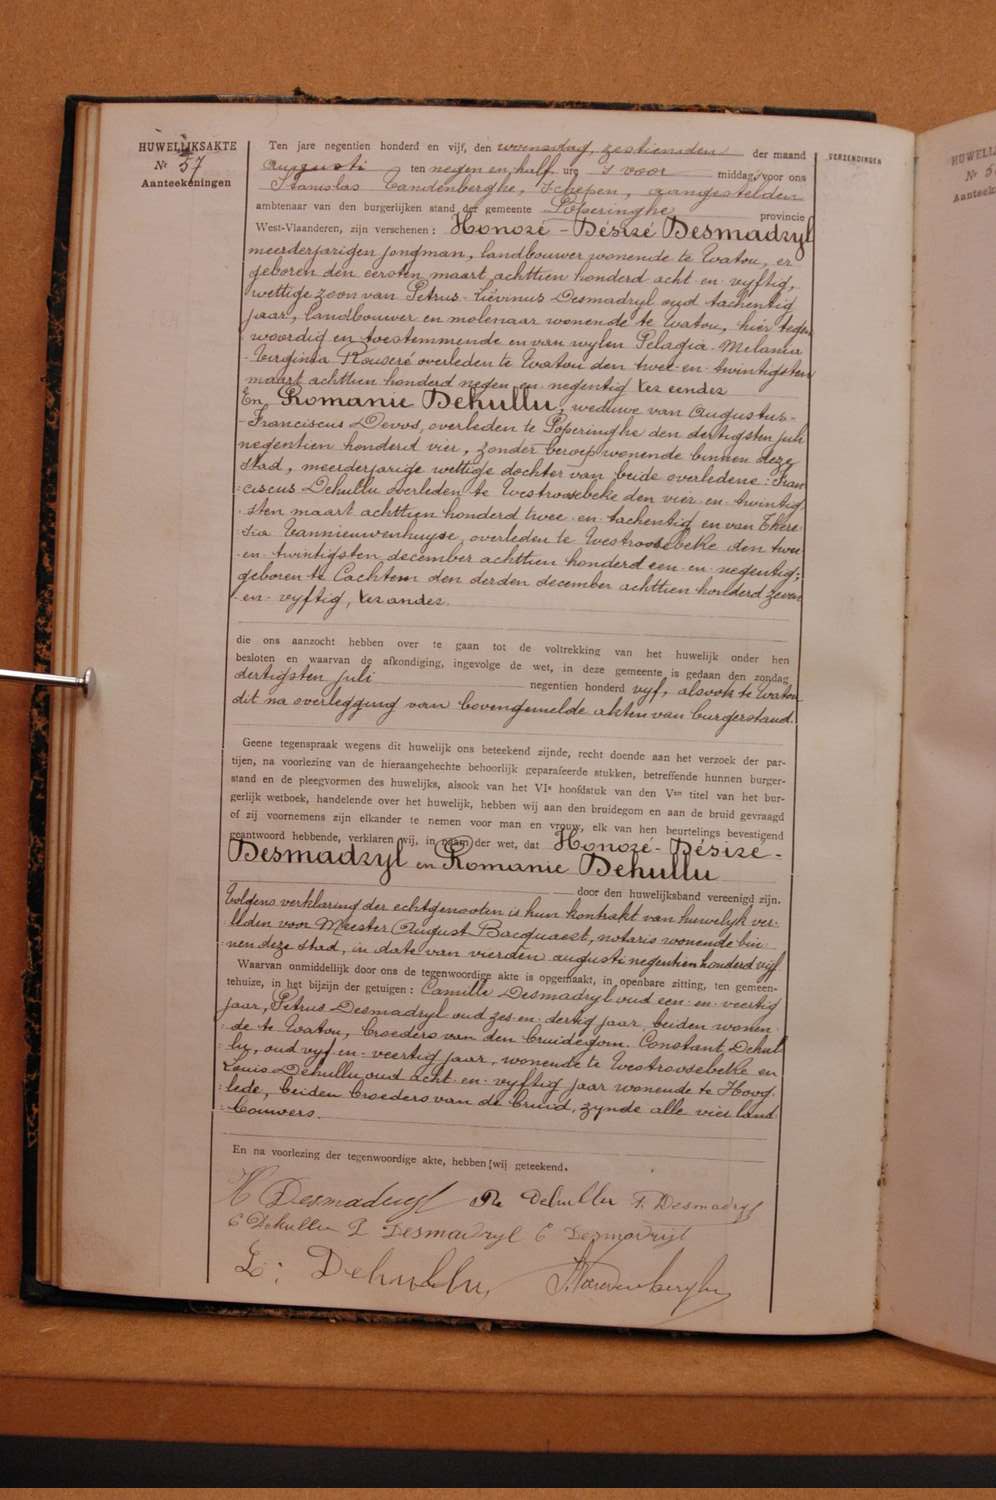 HUWELIJKSAKTE
Nr 57
Aanteekeningen
VERZENDINGEN
Ten jare negentien honderd en vijf, den woensdag, zestienden der maand
Augusti ten negen en half ure 's voor middag, voor ons
Stanislas Vandenberghe, Schepen, aangestelden
ambtenaar van den burgerlijken stand der gemeente Poperinghe provincie
West-Vlaanderen, zijn verschenen : Honoré - Désiré Desmadryl
meerderjarigen jongman, landbouwer wonende te Watou, er
geboren den eersten maart achttien honderd acht en vyftig,
wettige zoon van Petrus Liévinus Desmadryl oud tachentig
jaar, landbouwer en molenaar wonende te Watou, hier tegen
woordig en toestemmende en van wylen Pelagia Melania
Virginia Rouseré overleden te Watou den twee en twintigsten
maart achttien honderd negen en negentig ter eender
En Romanie Dehullu, weduwe van Augustus-
-Franciscus Devos, overleden te Poperinghe den dertigsten juli
negentien honderd vier, zonder beroep wonende binnen deze
stad, meerderjarige wettige dochter van beide overledene : Fran
ciscus Dehullu overleden te Westroosebeke den vier en twintig
sten maart achttien honderd twee en tachentig en van There
sia Vannieuwenhuyse, overleden te Westroosebeke den twee
en twintigsten december achttien honderd een en negentig;
geboren te Cachtem den derden december achttien honderd zeven
en vyftig, ter ander.
die ons aanzocht hebben over te gaan tot de voltrekking van het huwelijk onder hen
besloten en waarvan de afkondiging, ingevolge de wet, in deze gemeente is gedaan den zondag
dertigsten juli negentien honderd vyf, alsook te Watou
dit na overlegging van bovengemelde akten van burgerstand.
Geene tegenspraak wegens dit huwelijk ons beteekend zijnde, recht doende aan het verzoek der par-
tijen, na voorlezing van de hieraangehechte behoorlijk geparafeerde stukken, betreffende hunnen burger-
stand en de pleegvormen des huwelijks, alsook van het VIe hoofdstuk van den Ven titel van het bur-
gerlijk wetboek, handelende over het huwelijk, hebben wij aan den bruidegom en aan de bruid gevraagd
of zij voornemens zijn elkander te nemen voor man en vrouw, elk van hen beurtelings bevestigend
geantwoord hebbende, verklaren wij, in naam der wet, dat Honoré - Désiré -
Desmadryl en Romanie Dehullu
door den huwelijksband vereenigd zijn.
Volgens verklaring der echtgenooten is hun kontrakt van huwelyk ver-
leden voor Meester August Bacquaert, notaris wonende bin
nen deze stad, in date van vierden augusti negentien honderd vijf
Waarvan onmiddelijk door ons de tegenwoordige akte is opgemaakt, in openbare zitting, ten gemeen-
tehuize, in het bijzijn der getuigen : Camille Desmadryl oud een en veertig
jaar, Petrus Desmadryl oud zes en dertig jaar, beiden wonen
de te Watou, broeders van den bruidegom. Constant Dehul
lu, oud vyf en veertig jaar, wonende te Westroosebeke en
Louis Dehullu oud acht en vyftig jaar wonende te Hoog
lede, beiden broeders van de bruid, zynde alle vier land
bouwers.
En na voorlezing der tegenwoordige akte, hebben wij geteekend.
H Desmadryl Re Dehullu P. Desmadryl
C Dehullu P Desmadryl C Desmadrijl
L: Dehullu, S Vandenberghe